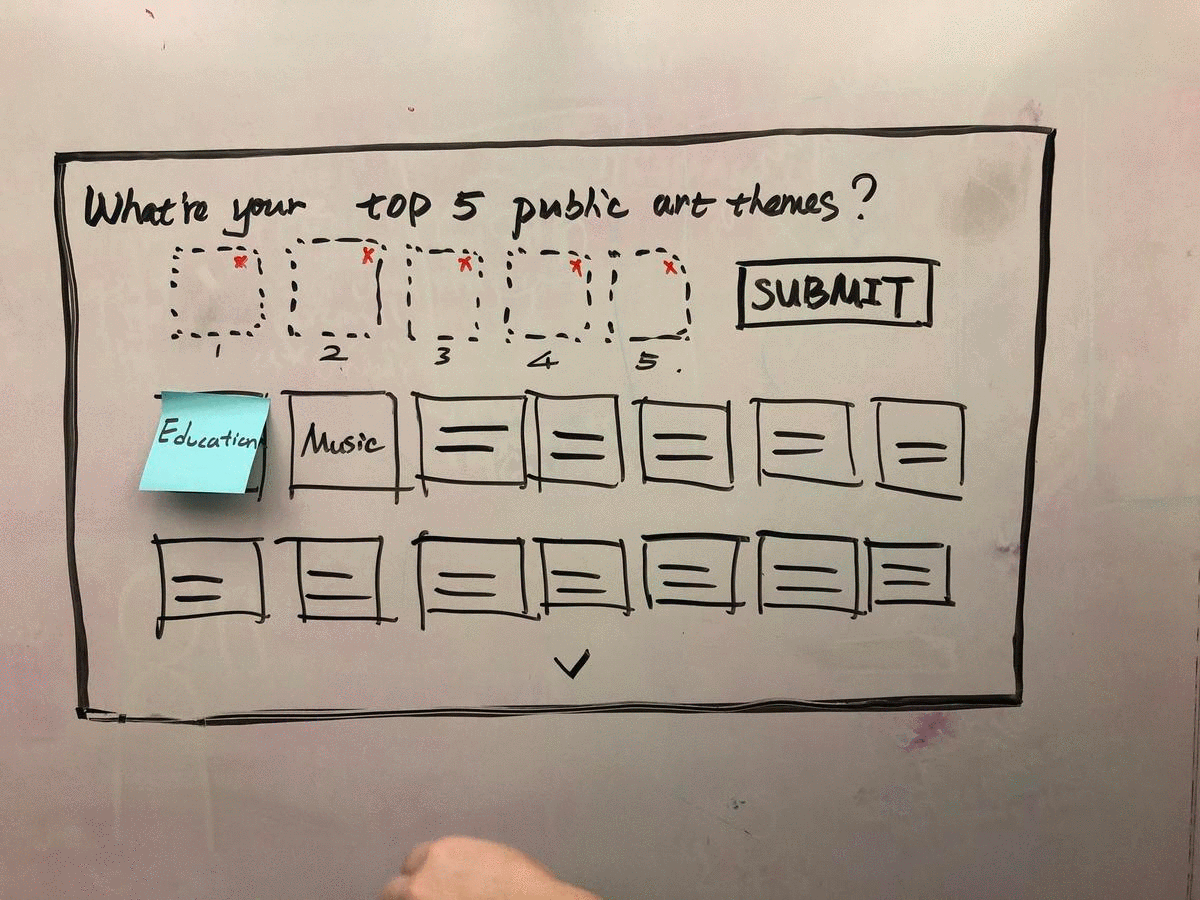 What're your top 5 public art themes?
x x x x x
SUBMIT
1 2 3 4 5.
Education
Music